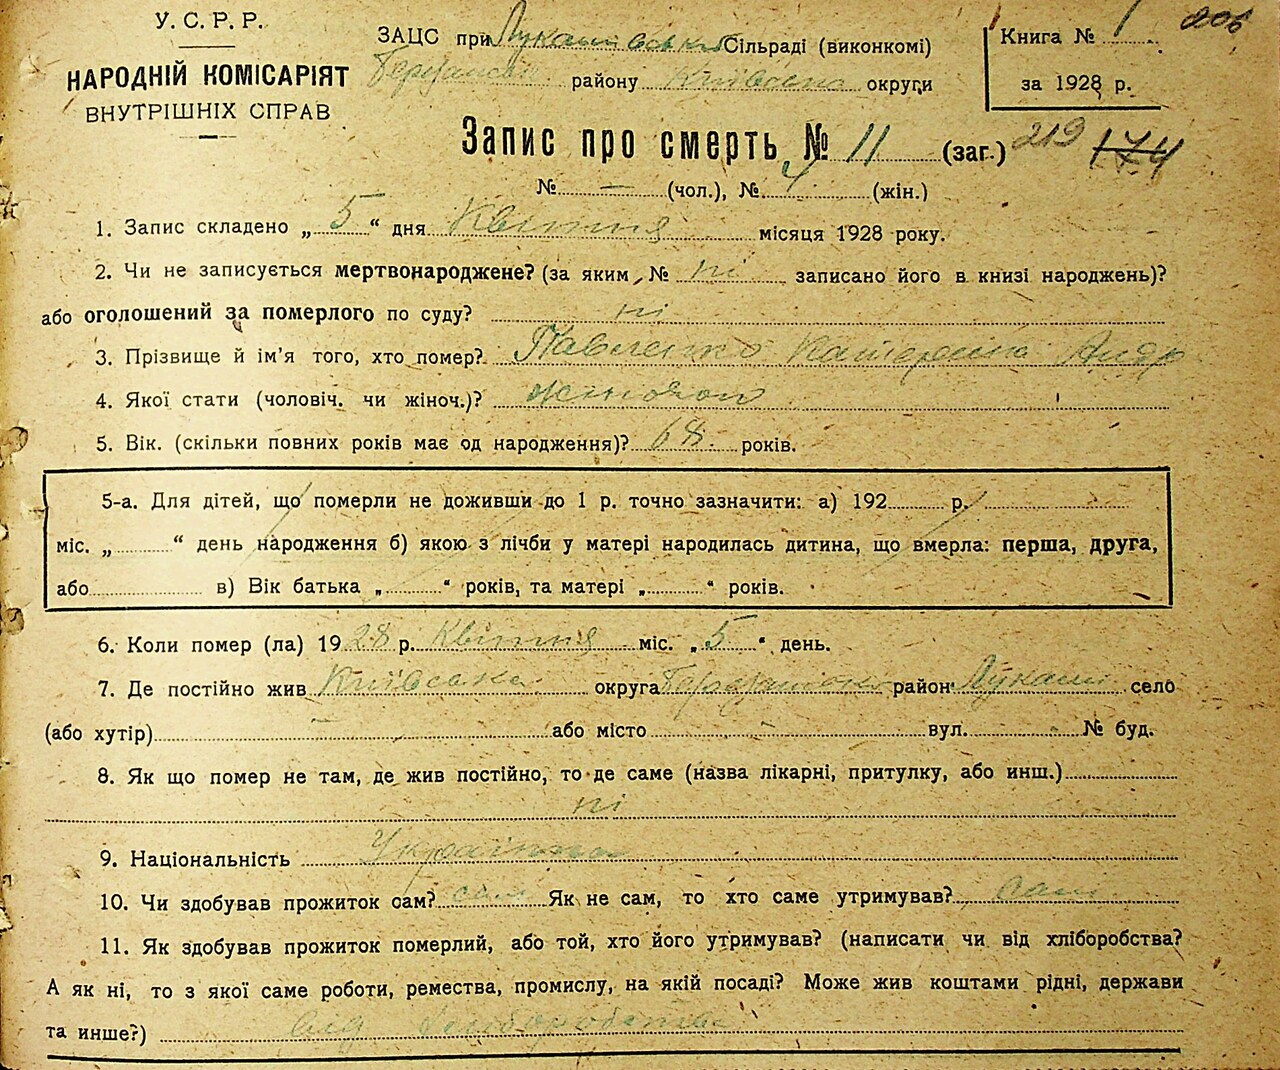 У. С. Р. Р.
НАРОДНІЙ КОМІСАРІЯТ
ВНУТРІШНІХ СПРАВ
ЗАЦС при Лукашівській Сільраді (виконкомі)
району Київської округи
Книга № 1
206
за 1928 р.
Запис про смерть № 11 (заг.) 219 174
№ — (чол.), № 4 (жін.)
1. Запис складено „ 5 “ дня Квітня місяця 1928 року.
2. Чи не записується мертвонароджене? (за яким № ні записано його в книзі народжень)?
або оголошений за померлого по суду? ні
3. Прізвище й ім'я того, хто помер? Павленко Катерина Андр
4. Якої стати (чоловіч. чи жіноч.)?
5. Вік. (скільки повних років має од народження)? 68 років.
5-а. Для дітей, що померли не доживши до 1 р. точно зазначити: а) 192 р.
міс. „ “ день народження б) якою з лічби у матері народилась дитина, що вмерла: перша, друга,
або в) Вік батька „ “ років, та матері „ “ років.
6. Коли помер (ла) 19 28 р. Квітня міс. „ 5 “ день.
7. Де постійно жив Київська округа район Лукаші село
(або хутір) — або місто — вул. № буд.
8. Як що помер не там, де жив постійно, то де саме (назва лікарні, притулку, або инш.)
ні
9. Національність Українка
10. Чи здобував прожиток сам? сам Як не сам, то хто саме утримував? сам
11. Як здобував прожиток померлий, або той, хто його утримував? (написати чи від хліборобства?
А як ні, то з якої саме роботи, ремества, промислу, на якій посаді? Може жив коштами рідні, держави
та инше?) від хліборобства